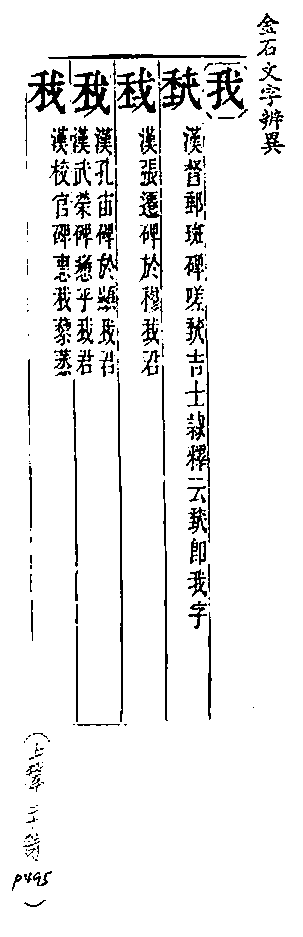 金石文字辨異
我
𢦓 漢督郵班碑嗟𢦓吉士隸釋云𢦓即我字
我 漢張遷碑於穆我君
我 漢孔宙碑於顯我君
漢武榮碑懋乎我君
我 漢校官碑惠我黎蒸
上聲 二十
p495